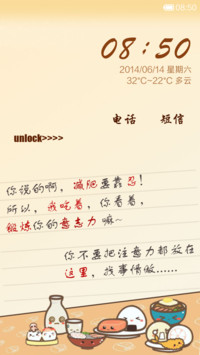 08:50
08:50
2014/06/14 星期六
32°C~22°C 多云
电话 短信
unlock>>>>
你说的啊，减肥要靠忍！
所以，我吃着，你看着，
锻炼你的意志力嘛~
你不要把注意力都放在
这里，找事情做......